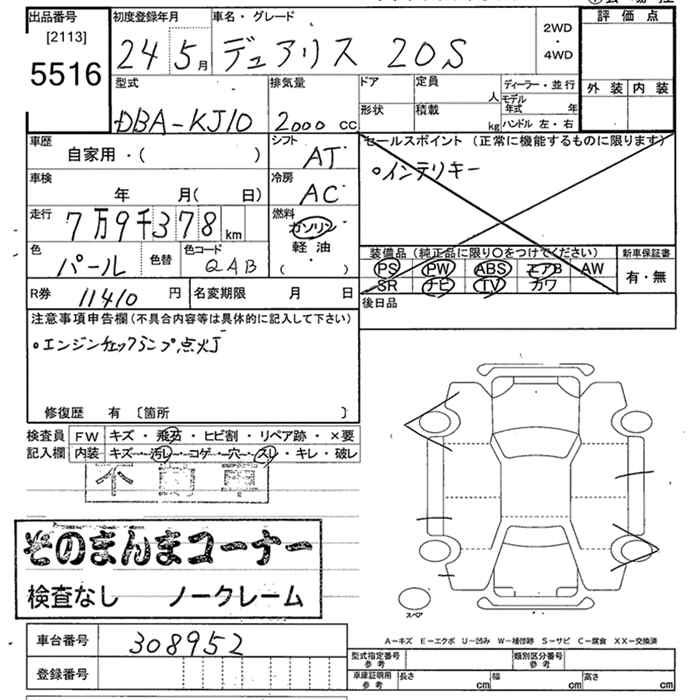 出品番号
[2113]
5516
初度登録年月
24 5月
車名・グレード
デュアリス 20S
2WD
・
4WD
評価点
外装 内装
型式
DBA-KJ10
排気量
2000 cc
ドア
形状
定員
人
積載
kg
ディーラー・並行
モデル年式 年
ハンドル 左・右
車歴
自家用・( )
シフト
AT
セールスポイント (正常に機能するものに限ります)
・インテリキー
車検
年 月( 日)
冷房
AC
走行
7万9千378km
燃料
ガソリン
軽油
( )
色
パール
色替
色コード
QAB
装備品 (純正品に限り○をつけてください)
PS PW ABS エアB AW
SR ナビ TV カワ
新車保証書
有・無
R券
11410円
名変期限 月 日
後日品
注意事項申告欄 (不具合内容等は具体的に記入して下さい)
・エンジンチェックランプ点灯
修復歴 有 〔箇所 〕
検査員
記入欄
FW キズ・飛石・ヒビ割・リペア跡・×要
内装 キズ・汚レ・コゲ・穴・スレ・キレ・破レ
不動車
そのまんまコーナー
検査なし ノークレーム
スペア
車台番号
308952
登録番号
A-キズ E-エクボ U-凹み W-補修跡 S-サビ C-腐食 XX-交換済
型式指定番号
参考
類別区分番号
参考
車庫証明用
参考
長さ cm
幅 cm
高さ cm